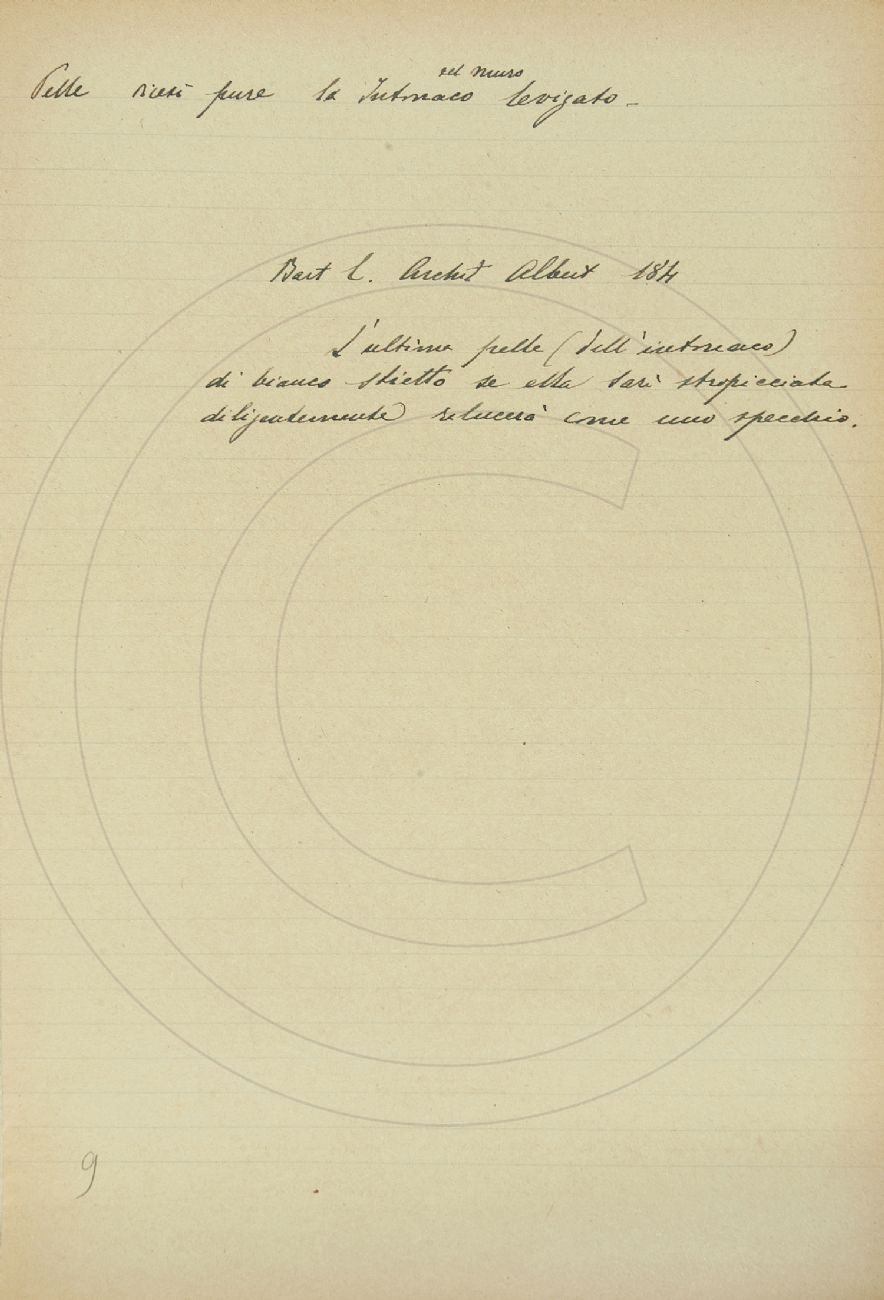 del muro
Pelle dicesi pure la Intonaco levigato –
Bart L. Archit Albert 184
L'ultima pelle (dell'intonaco)
di bianco stietto se ella sarà stropicciata
diligentemente rilucerà come uno specchio.
9